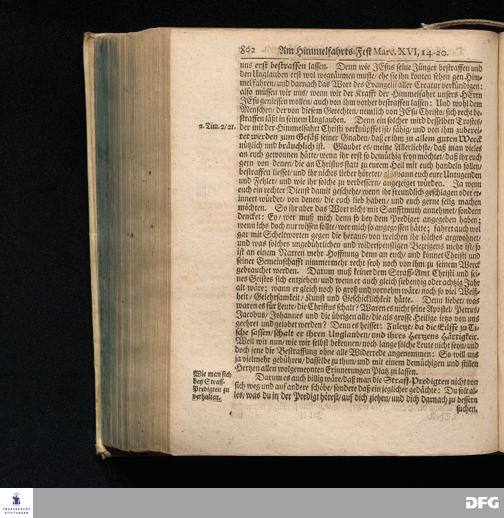 802 Am Himmelfahrts-Fest Marc. XVI, 14-20.
uns erst bestraffen lassen. Denn wie JEsus seine Jünger bestraffen und
den Unglauben erst wol wegräumen muste/ ehe sie ihn konten sehen gen Him-
mel fahren/ und darnach das Wort des Evangelii aller Creatur verkündigen:
also müssen wir uns/ wenn wir der Krafft der Himmelfahrt unsers HErrn
JEsu geniessen wollen/ auch von ihm vorher bestraffen lassen: Und wohl dem
Menschen/ der von diesem Gerechten/ nemlich von JEsu Christo/ sich recht be-
straffen läßt in seinem Unglauben. Denn ein solcher wird desselben Trostes/
2. Tim. 2/21.
der mit der Himmelfahrt Christi verknüpffet ist/ fähig/ und von ihm zuberei-
tet werden zum Gefäß seiner Gnaden/ daß er ihm zu allem guten Werck
nützlich und bräuchlich ist. Glaubet es/ meine Allerliebste/ daß man vieles
an euch gewonnen hätte/ wenn ihr erst so demüthig seyn möchtet/ daß ihr euch
gern von denen/ die an Christus statt zu eurem Heil mit euch handeln sollen/
bestraffen liesset/ und ihr nichts lieber höretet/ als wann euch eure Untugenden
und Fehler/ und wie ihr solche zu verbessern/ angezeiget würden. Ja wenn
euch ein rechter Dienst damit geschehe/ wenn ihr freundlich geschlagen oder er-
innert würdet/ von denen/ die euch lieb haben/ und euch gerne selig machen
möchten. So ihr aber das Wort nicht mit Sanfftmuth annehmet/ sondern
dencket: Ey/ wer muß mich denn so bey dem Prediger angegeben haben;
wenn ichs doch nur wissen solte/ wer mich so angegossen hätte; fahret auch wol
gar mit Scheltworten gegen die heraus/ von welchen ihr solches argwohnet/
und was solches ungebührlichen und widerspenstigen Bezeigens mehr ist/ so
ist an einem Narren mehr Hoffnung denn an euch/ und könnet Christi und
seiner Gemeinschafft nimmermehr recht froh noch von ihm zu seinem Werck
gebrauchet werden. Darum muß keiner dem Straff-Amt Christi und sei-
nes Geistes sich entziehen/ und wenn er auch gleich siebentzig oder achtzig Jahr
alt wäre; wann er gleich noch so groß und vornehm wäre/ noch so viel Weiß-
heit/ Gelehrsamkeit/ Kunst und Geschicklichkeit hätte. Denn lieber/ was
waren es für Leute/ die Christus schalt? Waren es nicht seine Apostel/ Petrus/
Jacobus/ Johannes und die übrigen alle/ die als grosse Heilige ietzo von uns
geehret und gelobet werden? Denn es heisset: Zuletzt/ da die Eilffe zu Ti-
sche sassen/ schalt er ihren Unglauben/ und ihres Hertzens Härtigkeit.
Weil wir nun/ wie wir selbst bekennen/ noch lange solche Leute nicht seyn/ und
doch jene die Bestraffung ohne alle Widerrede angenommen: So will uns
ja vielmehr gebühren/ dasselbe zu thun/ und mit einem demüthigen und stillen
Hertzen allen wolgemeynten Erinnerungen Platz zu lassen.
Wie man sich
bey Straff-
Predigten zu
verhalten.
Darum es auch billig wäre/ daß man die Straff-Predigten nicht von
sich weg und auf andere schöbe/ sondern daß ein jeglicher gedächte: Du solt al-
les/ was du in der Predigt hörest/ auf dich ziehen/ und dich darnach zu bessern
suchen,
FRANCKESCHE
STIFTUNGEN
DFG